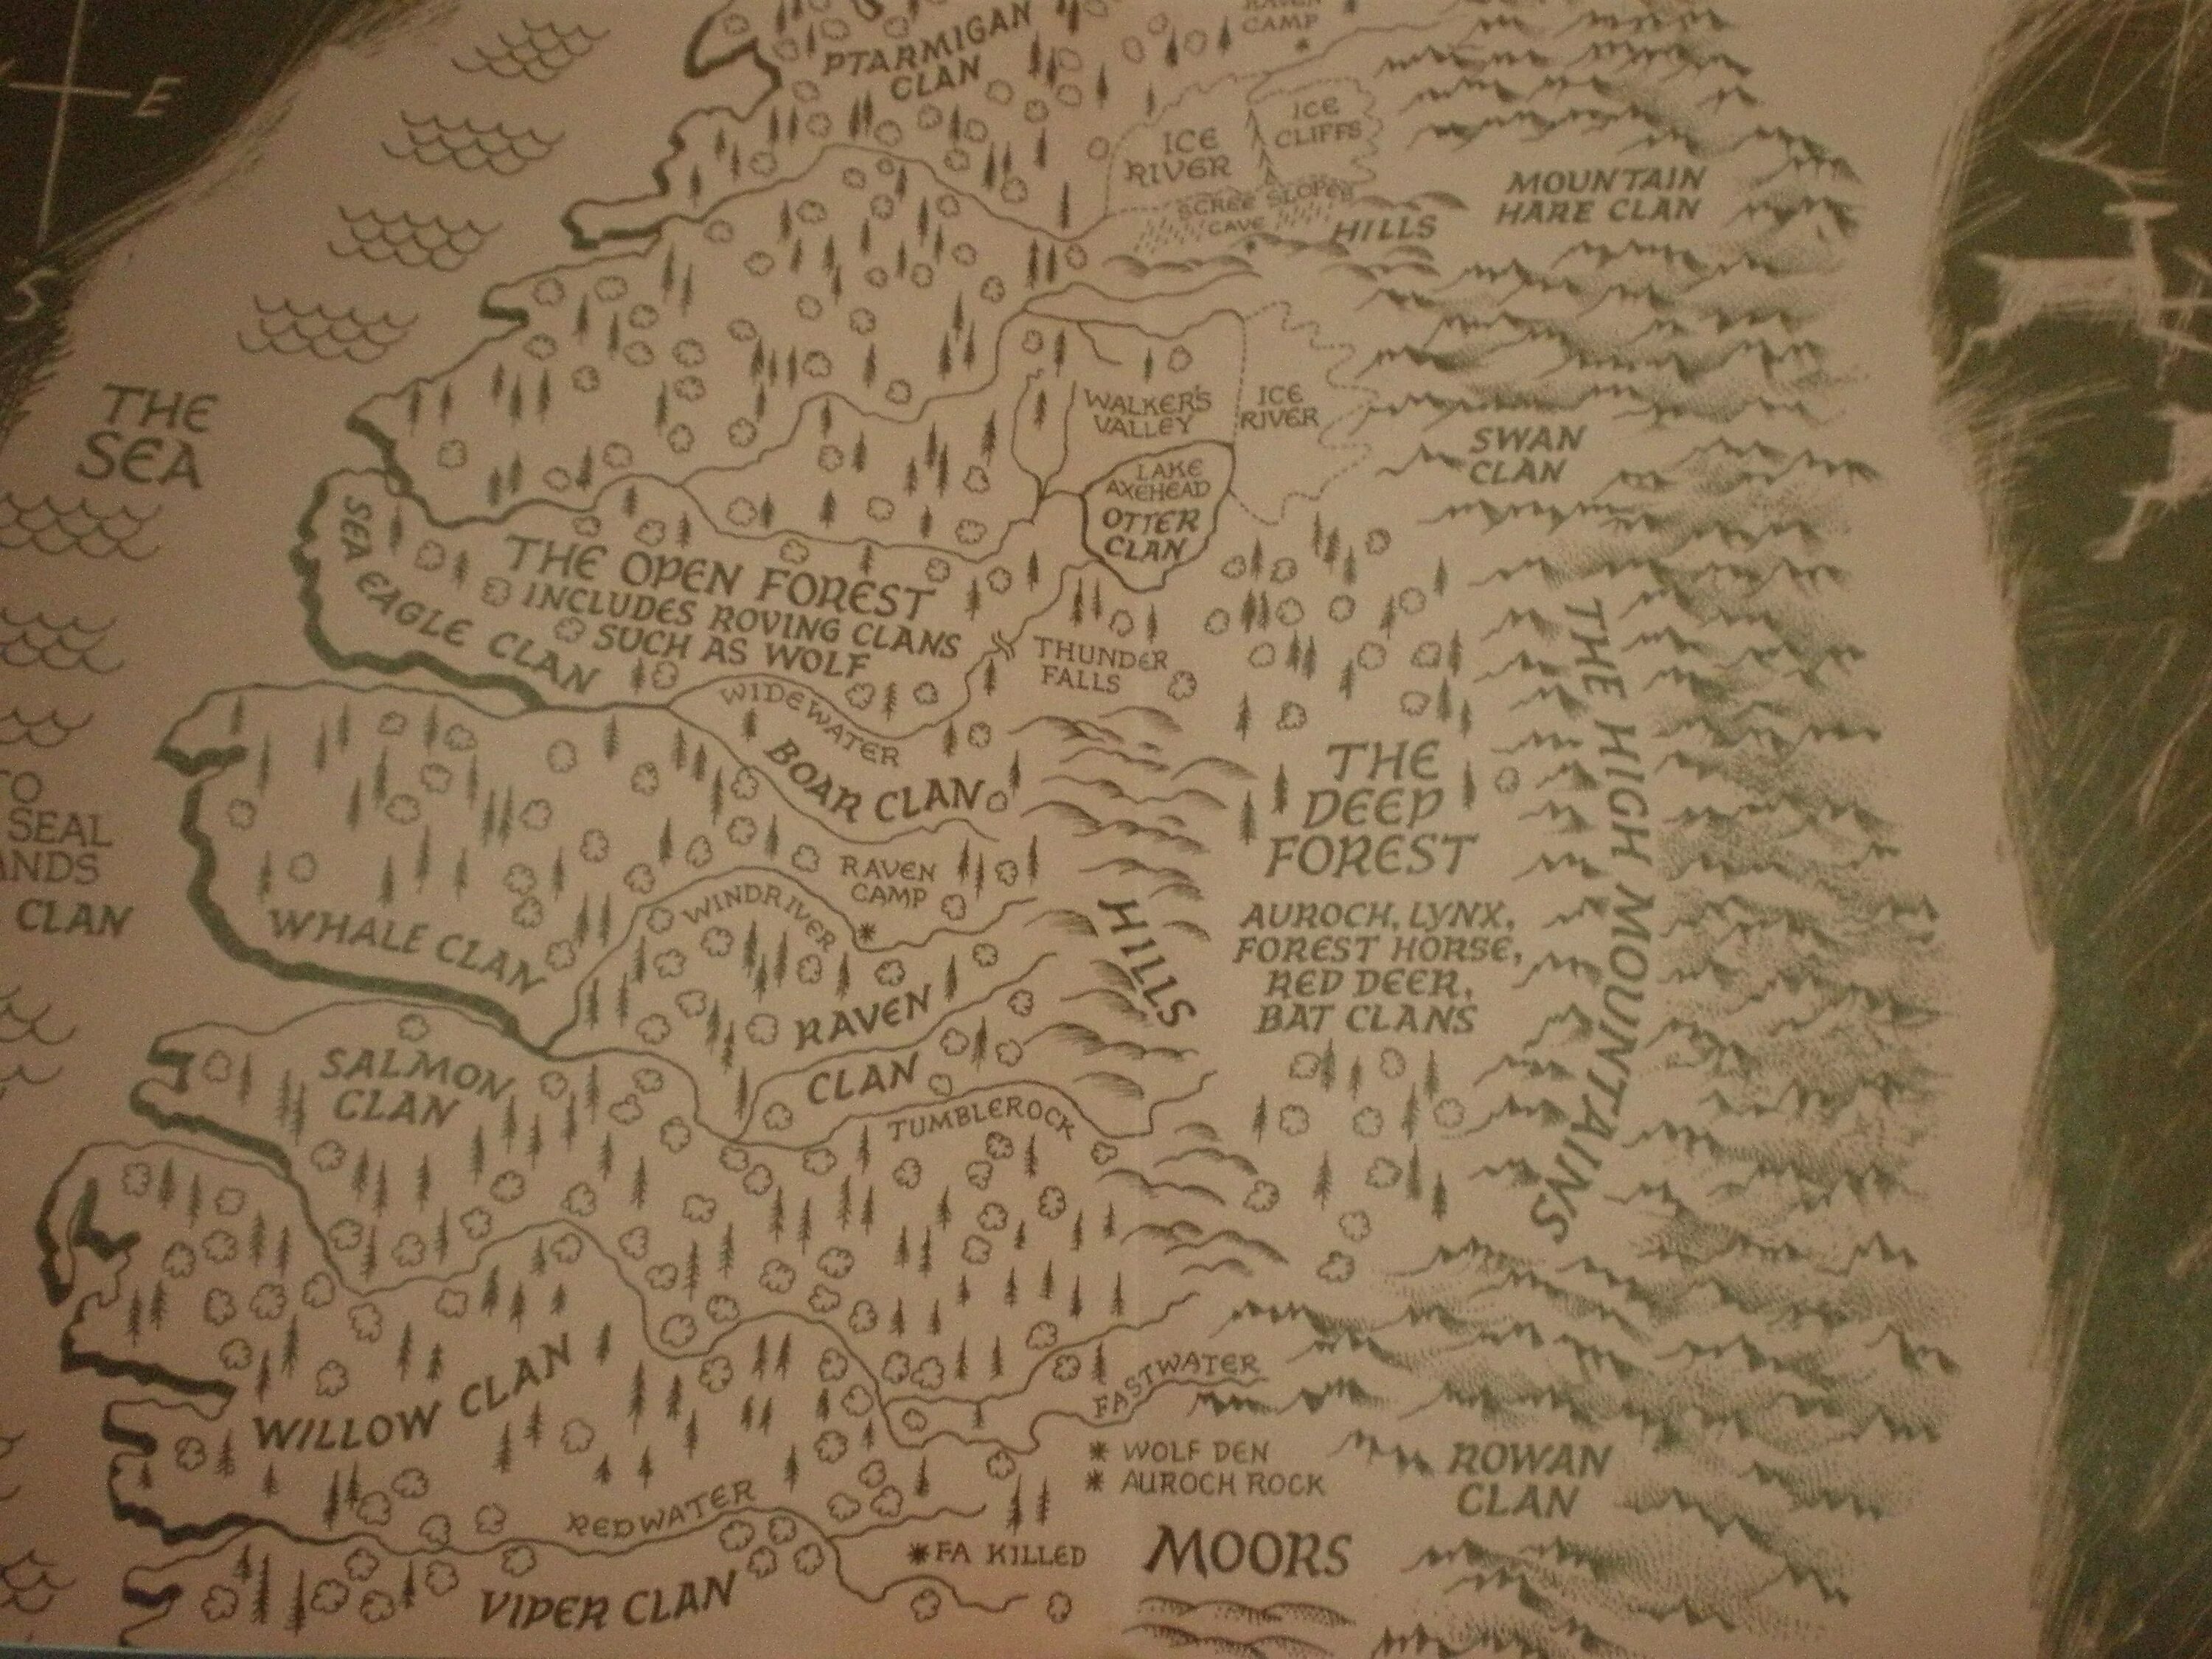 E
S
PTARMIGAN
CLAN
RAVEN
CAMP
ICE
RIVER
ICE
CLIFFS
SCREE SLOPES
CAVE
HILLS
MOUNTAIN
HARE CLAN
THE
SEA
WALKER'S
VALLEY
ICE
RIVER
SWAN
CLAN
LAKE
AXEHEAD
OTTER
CLAN
SEA EAGLE CLAN
THE OPEN FOREST
INCLUDES ROVING CLANS
SUCH AS WOLF
THUNDER
FALLS
WIDEWATER
BOAR CLAN
THE HIGH MOUNTAINS
THE
DEEP
FOREST
AUROCH, LYNX,
FOREST HORSE,
RED DEER,
BAT CLANS
TO
SEAL
ANDS
CLAN
RAVEN
CAMP
WINDRIVER
WHALE CLAN
HILLS
RAVEN
CLAN
SALMON
CLAN
TUMBLEROCK
FASTWATER
WILLOW CLAN
WOLF DEN
AUROCH ROCK
ROWAN
CLAN
REDWATER
FA KILLED
MOORS
VIPER CLAN